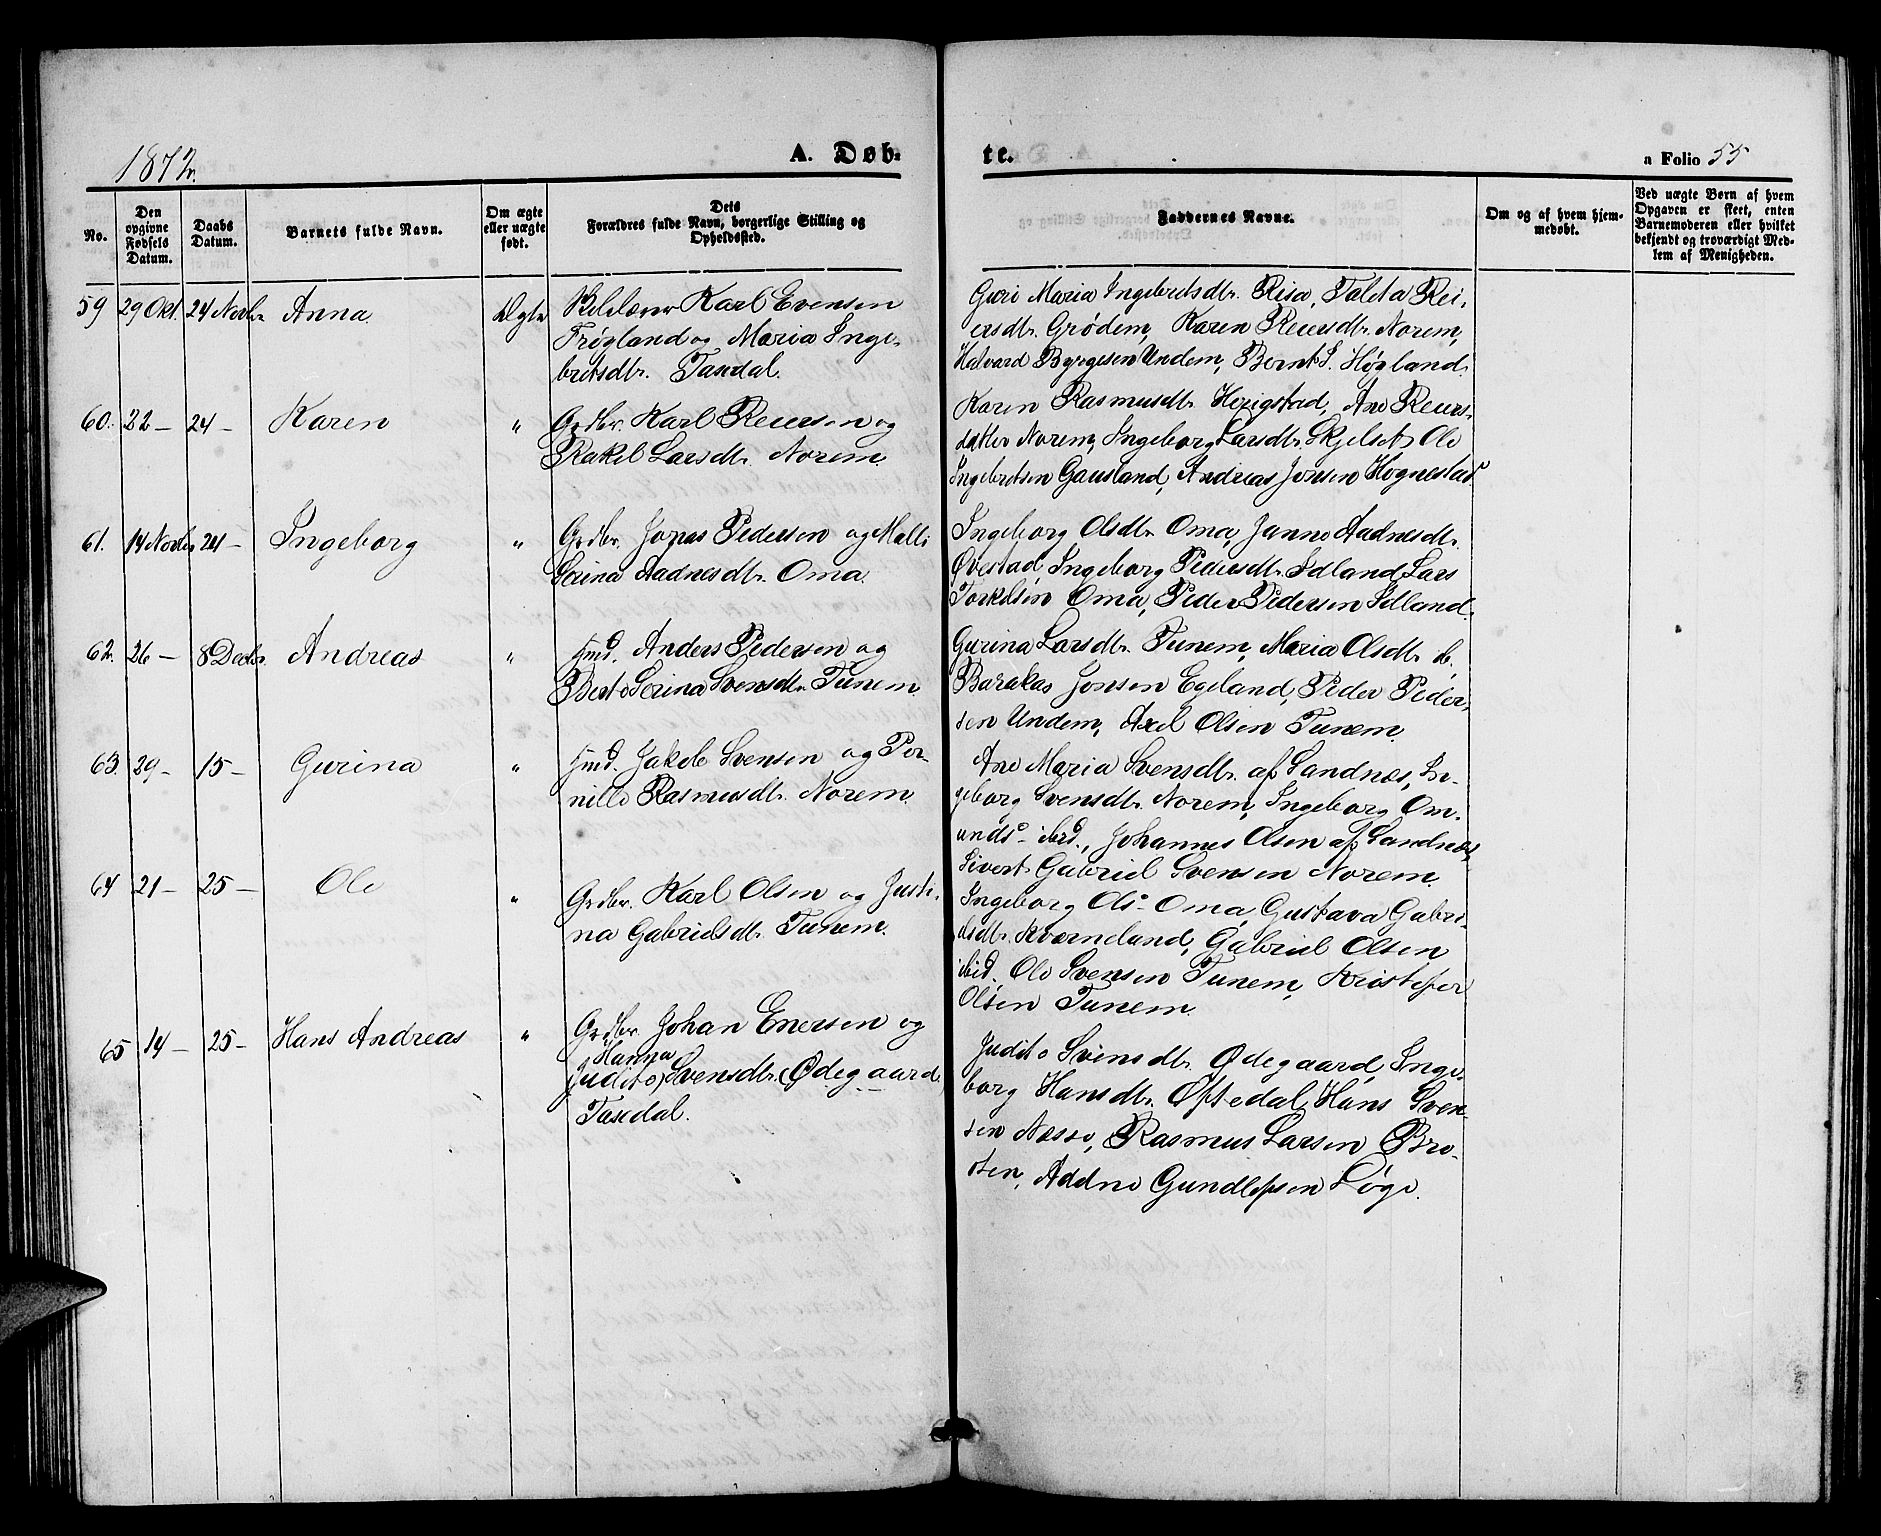 1872.
A. Døb-
te.
a Folio 55
No.
Den
opgivne
Fødsels
Datum.
Daabs
Datum.
Barnets fulde Navn.
Om ægte
eller uægte
født.
Dets
Forældres fulde Navn, borgerlige Stilling og
Opholdssted.
Faddernes Navne.
Om og af hvem hjem-
medøbt.
Ved uægte Børn af hvem
Opgaven er skeet, enten
Barnemoderen eller hvilket
bekjendt og troværdigt Med-
lem af Menigheden.
59 29 Okt. 24 Novbr Anna Ægte Karl Evensen
Frøyland og Maria Inge-
britsdtr. Taxdal.
Guri Maria Ingebritsdtr. Risa, Taleta Rei-
ersdtr. Grødem, Karen Reiersdtr. Norem,
Halvard Byrgesen Undem, Bernt S. Høyland.
60. 22 — 24 — Karen " Grdbr. Karl Reiersen og
Rakel Larsdtr. Norem.
Karen Rasmusdtr. Herigstad, Ane Reiers-
datter Norem, Ingeborg Larsdtr. Skjelset, Ole
Ingebretsen Gausland, Andreas Jonsen Hognestad
61. 14 Novbr 24 — Ingeborg " Grdbr. Jonas Pedersen og Malli
Serina Aadnesdtr. Oma.
Ingeborg Olsdtr. Oma, Janne Aadnesdtr.
Øvestad Ingeborg Pedersdtr. Idland, Lars
Torkelsen Oma, Peder Pedersen Idland.
62. 26 — 8 Decbr. Andreas " Hmd. Anders Pedersen og
Berte Serina Svensdtr. Tunem.
Gurina Larsdtr. Tunem, Maria Olsdtr. ib.
Barakas Jonsen Egeland, Peder Peder-
sen Undem, Axel Olsen Tunem.
63. 29 — 15 — Gurina " Hmd. Jakob Svensen og Per-
nille Rasmusdtr. Norem.
Ane Maria Svensdtr. af Sandnæs, In-
geborg Svensdtr. Norem, Ingeborg Om-
undsd ibid., Johannes Olsen af Sandnæs,
Sivert Gabriel Svensen Norem.
64 21 — 25 — Ole " Grdbr. Karl Olsen og Justi-
na Gabrielsdtr. Tunem.
Ingeborg Olsd Oma, Gustava Gabri-
elsdtr. Kværneland, Gabriel Olsen
ibid. Ole Svensen Tunem, Kristofer
Olsen Tunem.
65 14 — 25 — Hans Andreas " Grdbr. Johan Enersen og
Hanna
(Judite) Svensdtr. (Ødegaard)
Taxdal.
Judite Svensdtr. Ødegaard, Inge-
borg Hansdtr. Oftedal, Hans Sven-
sen Næsse, Rasmus Larsen Bro-
sten, Addne Gundlefsen Løge.